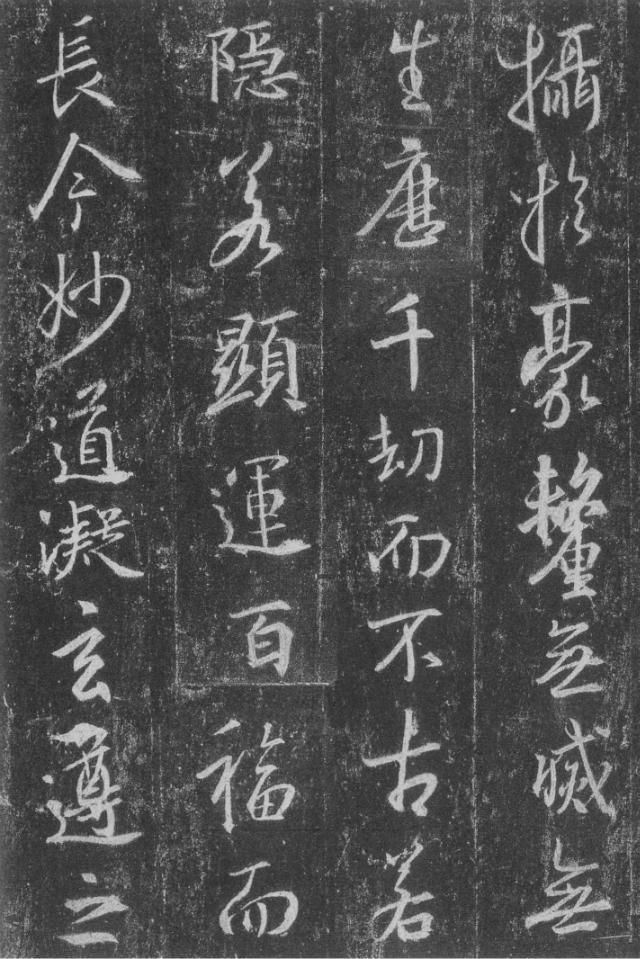 攝於豪氂無滅無
生歷千劫而不古若
隱若顯運百福而
長今妙道凝玄遵之